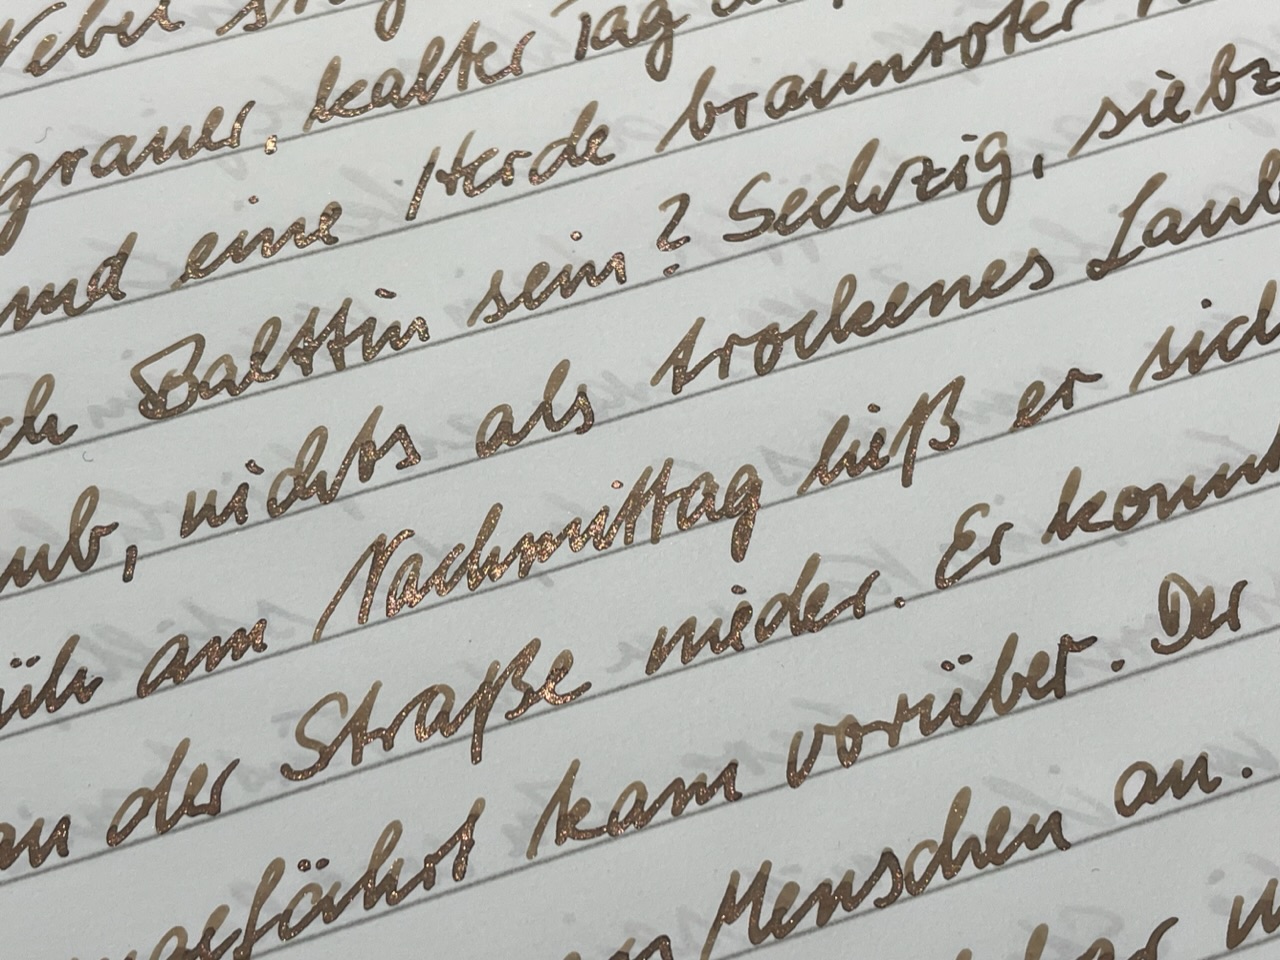 Nebel
grauer, kalter Tag
und eine Herde braunroter
ch Balttin sein? Sechzig, siebz
ub, nichts als trockenes Laub
am Nachmittag ließ er sich
an der Straße nieder. Er konnt
gefährt kam vorüber. Der
Menschen an.